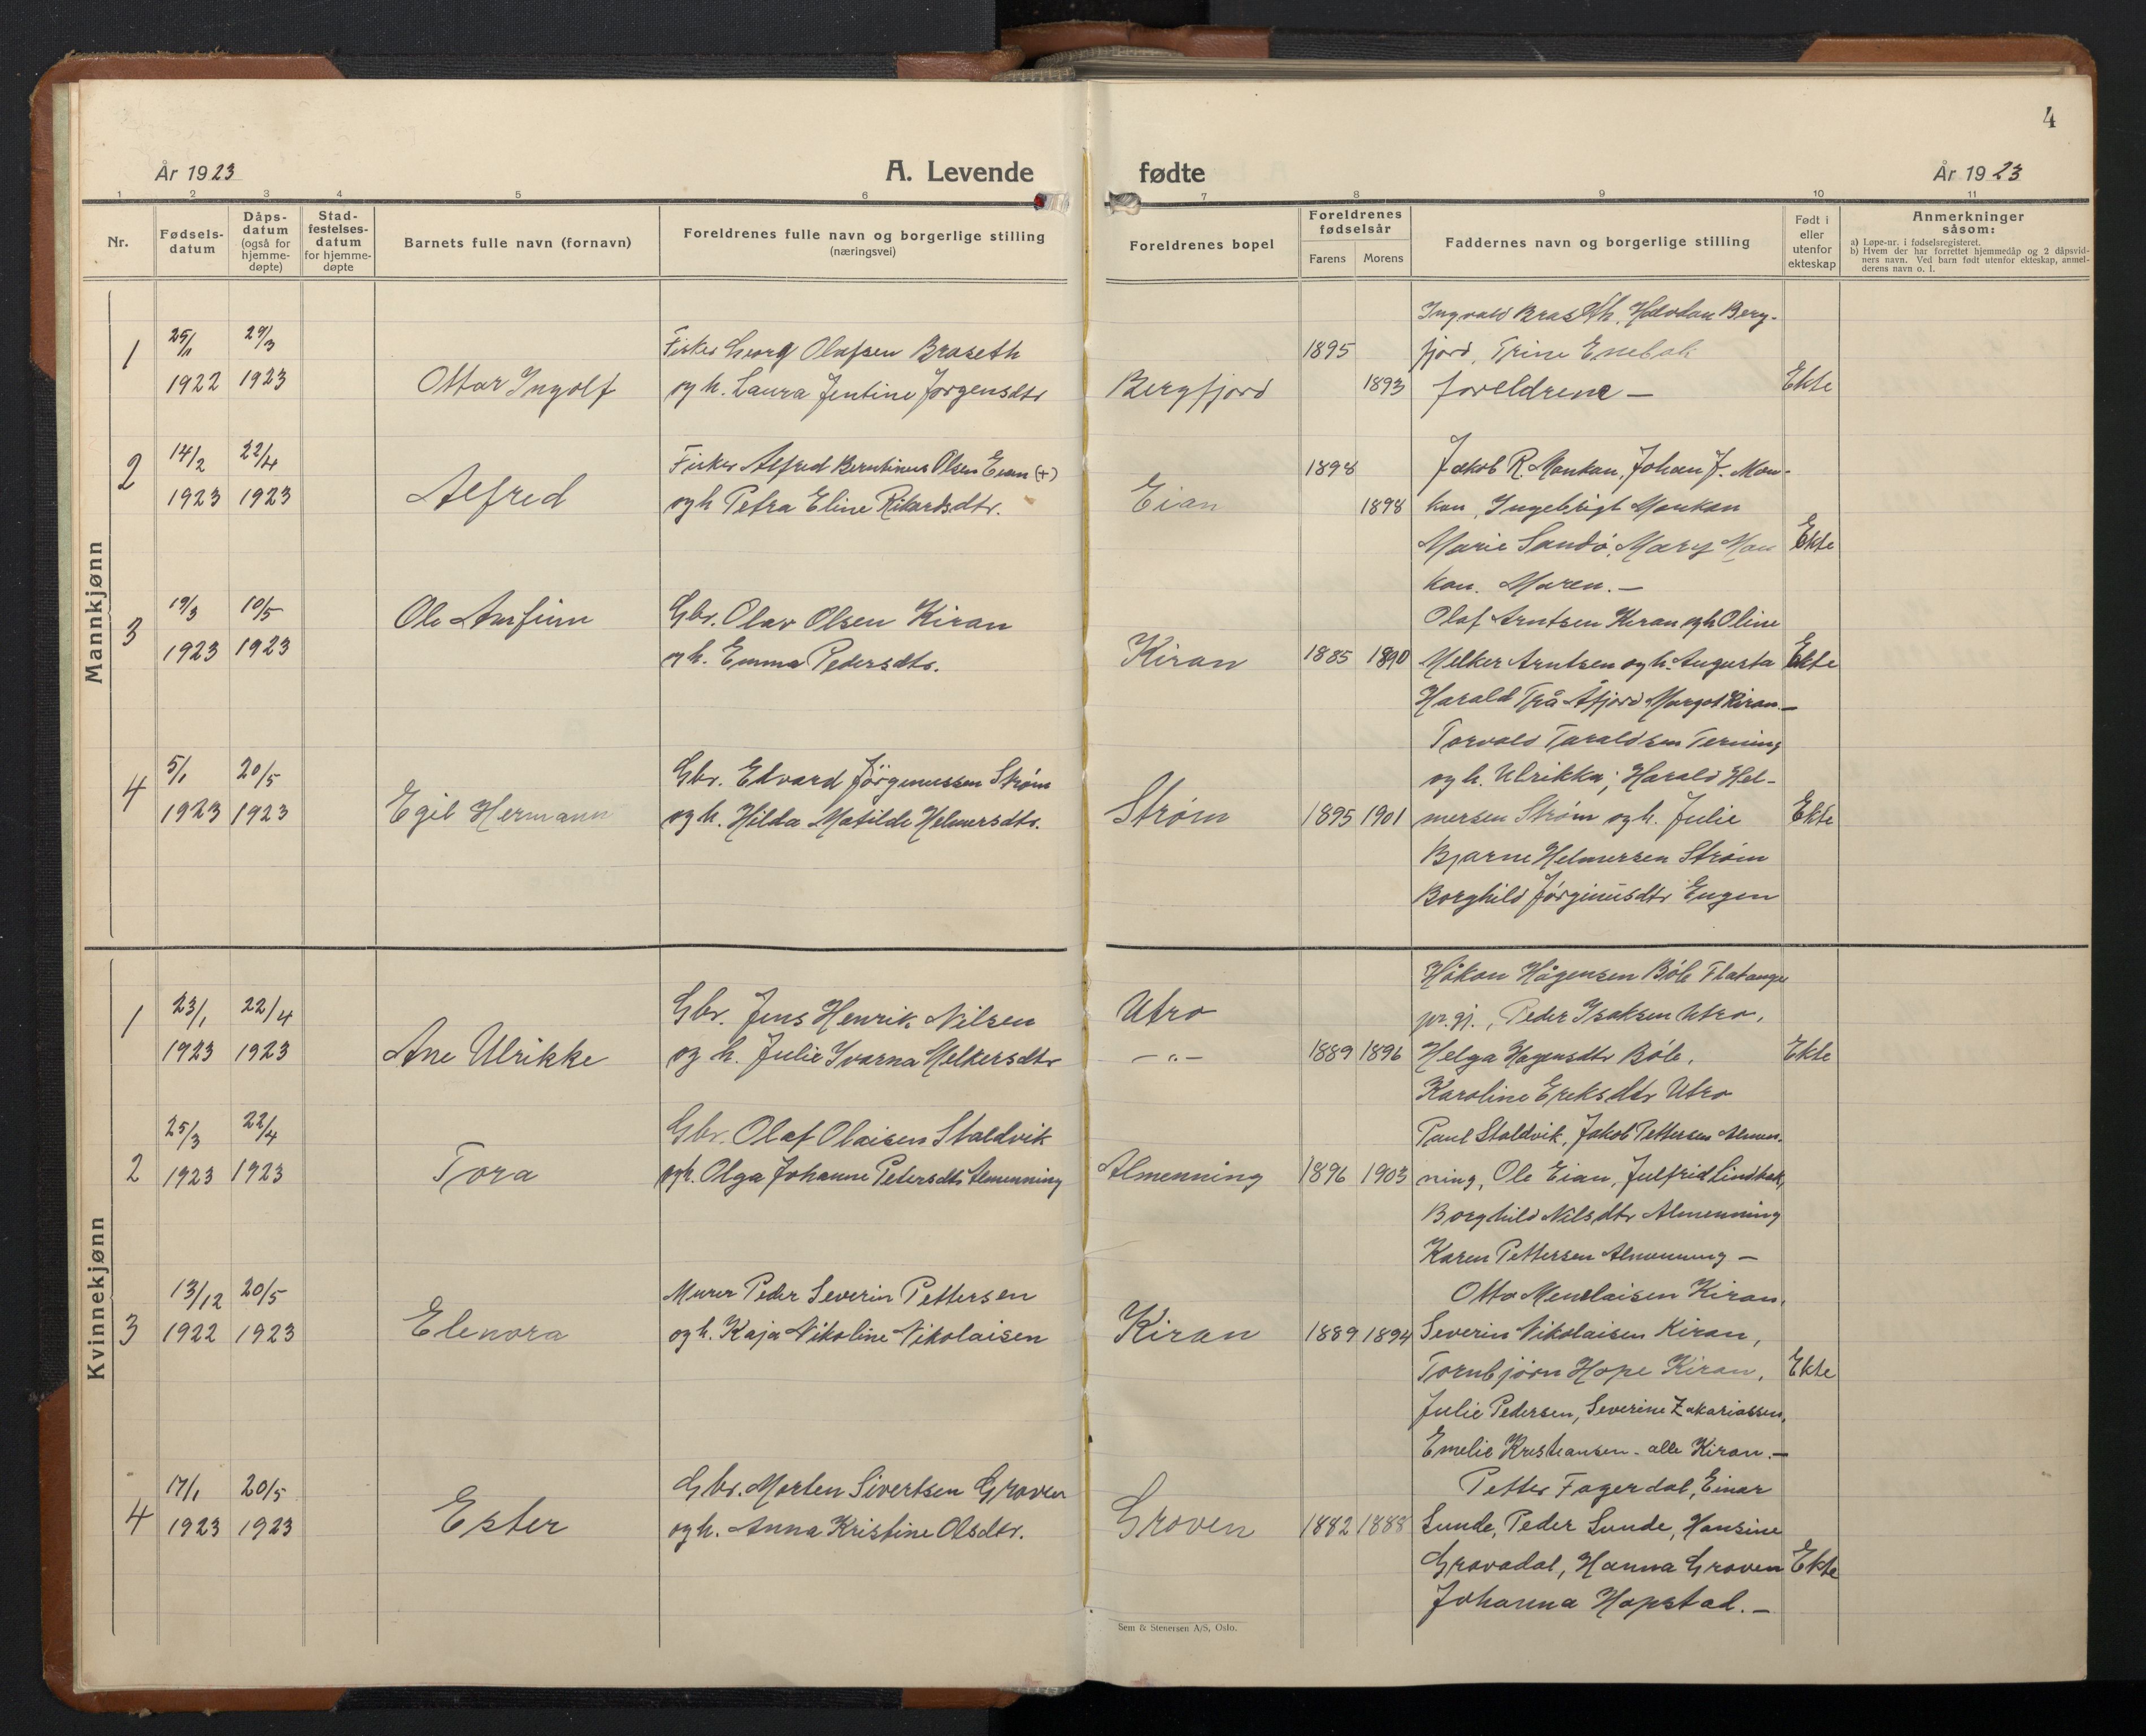 4
År 1923
A. Levende
fødte
År 1923
1 2 3 4 5 6 7 8 9 10 11
Nr.
Fødsels-
datum
Dåps-
datum
(også for
hjemme-
døpte)
Stad-
festelses-
datum
for hjemme-
døpte
Barnets fulle navn (fornavn)
Foreldrenes fulle navn og borgerlige stilling
(næringsvei)
Foreldrenes bopel
Foreldrenes
fødselsår
Farens
Morens
Faddernes navn og borgerlige stilling
Født i
eller
utenfor
ekteskap
Anmerkninger
såsom:
a) Løpe-nr. i fødselsregisteret.
b) Hvem der har forrettet hjemmedåp og 2 dåpsvid-
ners navn. Ved barn født utenfor ekteskap, anmel-
derens navn o. l.
Mannkjønn
1
25/1
1922
29/3
1923
Ottar Ingolf
Fisker Georg Olafsen Braseth
og h. Laura Jentine Jørgensdtr
Bergfjord
1895
1893
Ingvald Braseth, Halvdan Berg-
fjord, Trine Enebak
foreldrene —
Ekte
2
14/2
1923
22/4
1923
Alfred
Fisker Alfred Berntinus Olsen Eian (+)
og h Petra Eline Rikardsdtr.
Eian
1898
1898
Jakob R. Monkan, Johan J. Mon-
kan, Ingebrigt Monkan
Marie Sandø, Mary Mon
kan. Maren. —
Ekte
3
19/3
1923
10/5
1923
Ole Arnfinn
Gbr. Olav Olsen Kiran
og h. Emma Pedersdtr.
Kiran
1885
1890
Olaf Arntsen Kiran og h Oline
Melker Arntsen og h. Augusta
Harald Trå Åfjord, Margot Kiran —
Ekte
4
5/1
1923
20/5
1923
Egil Hermann
Gbr. Edvard Jørginussen Strøm
og h. Hilda Matilde Helmersdtr.
Strøm
1895
1901
Torvald Taraldsen Terning
og h. Ulrikka; Harald Hel-
mersen Strøm og h. Julie
Bjarne Helmersen Strøm
Borghild Jørginusdtr Eugen
Ekte
Kvinnekjønn
1
23/1
1923
22/4
1923
Ane Ulrikke
Gbr. Jens Henrik Nilsen
og h. Julie Ivarna Melkersdtr
Utro
— „ —
1889
1896
Håkon Hågensen Bøle Flatanger
pr.gj., Peder Isaksen Utro,
Helga Hagensdtr Bøle,
Karoline Eriksdtr Utro
Ekte
2
25/3
1923
22/4
1923
Tora
Gbr. Olaf Olaisen Staldvik
og h. Olga Johanne Petersdtr Almenning
Almenning
1896
1903
Paul Staldvik, Jakob Pettersen Almen-
ning, Ole Eian, Julfrid Lindbak,
Borghild Nilsdtr Almenning
Karen Pettersen Almenning —
3
13/12
1922
20/5
1923
Elenora
Murer Peder Severin Pettersen
og h. Kaja Nikoline Nikolaisen
Kiran
1889
1894
Otto Menelaisen Kiran,
Severin Nikolaisen Kiran,
Tornbjørn Hope Kiran,
Julie Pedersen, Severine Zakariassen,
Emelie Kristiansen - alle Kiran. —
Ekte
4
17/1
1923
20/5
1923
Ester
Gbr. Morten Sivertsen Groven
og h. Anna Kristine Olsdtr.
Groven
1882
1888
Petter Fagerdal, Einar
Sunde, Peder Sunde, Hansine
Gravadal, Hanna Groven
Johanna Hopstad. —
Ekte
Sem & Stenersen A/S, Oslo.